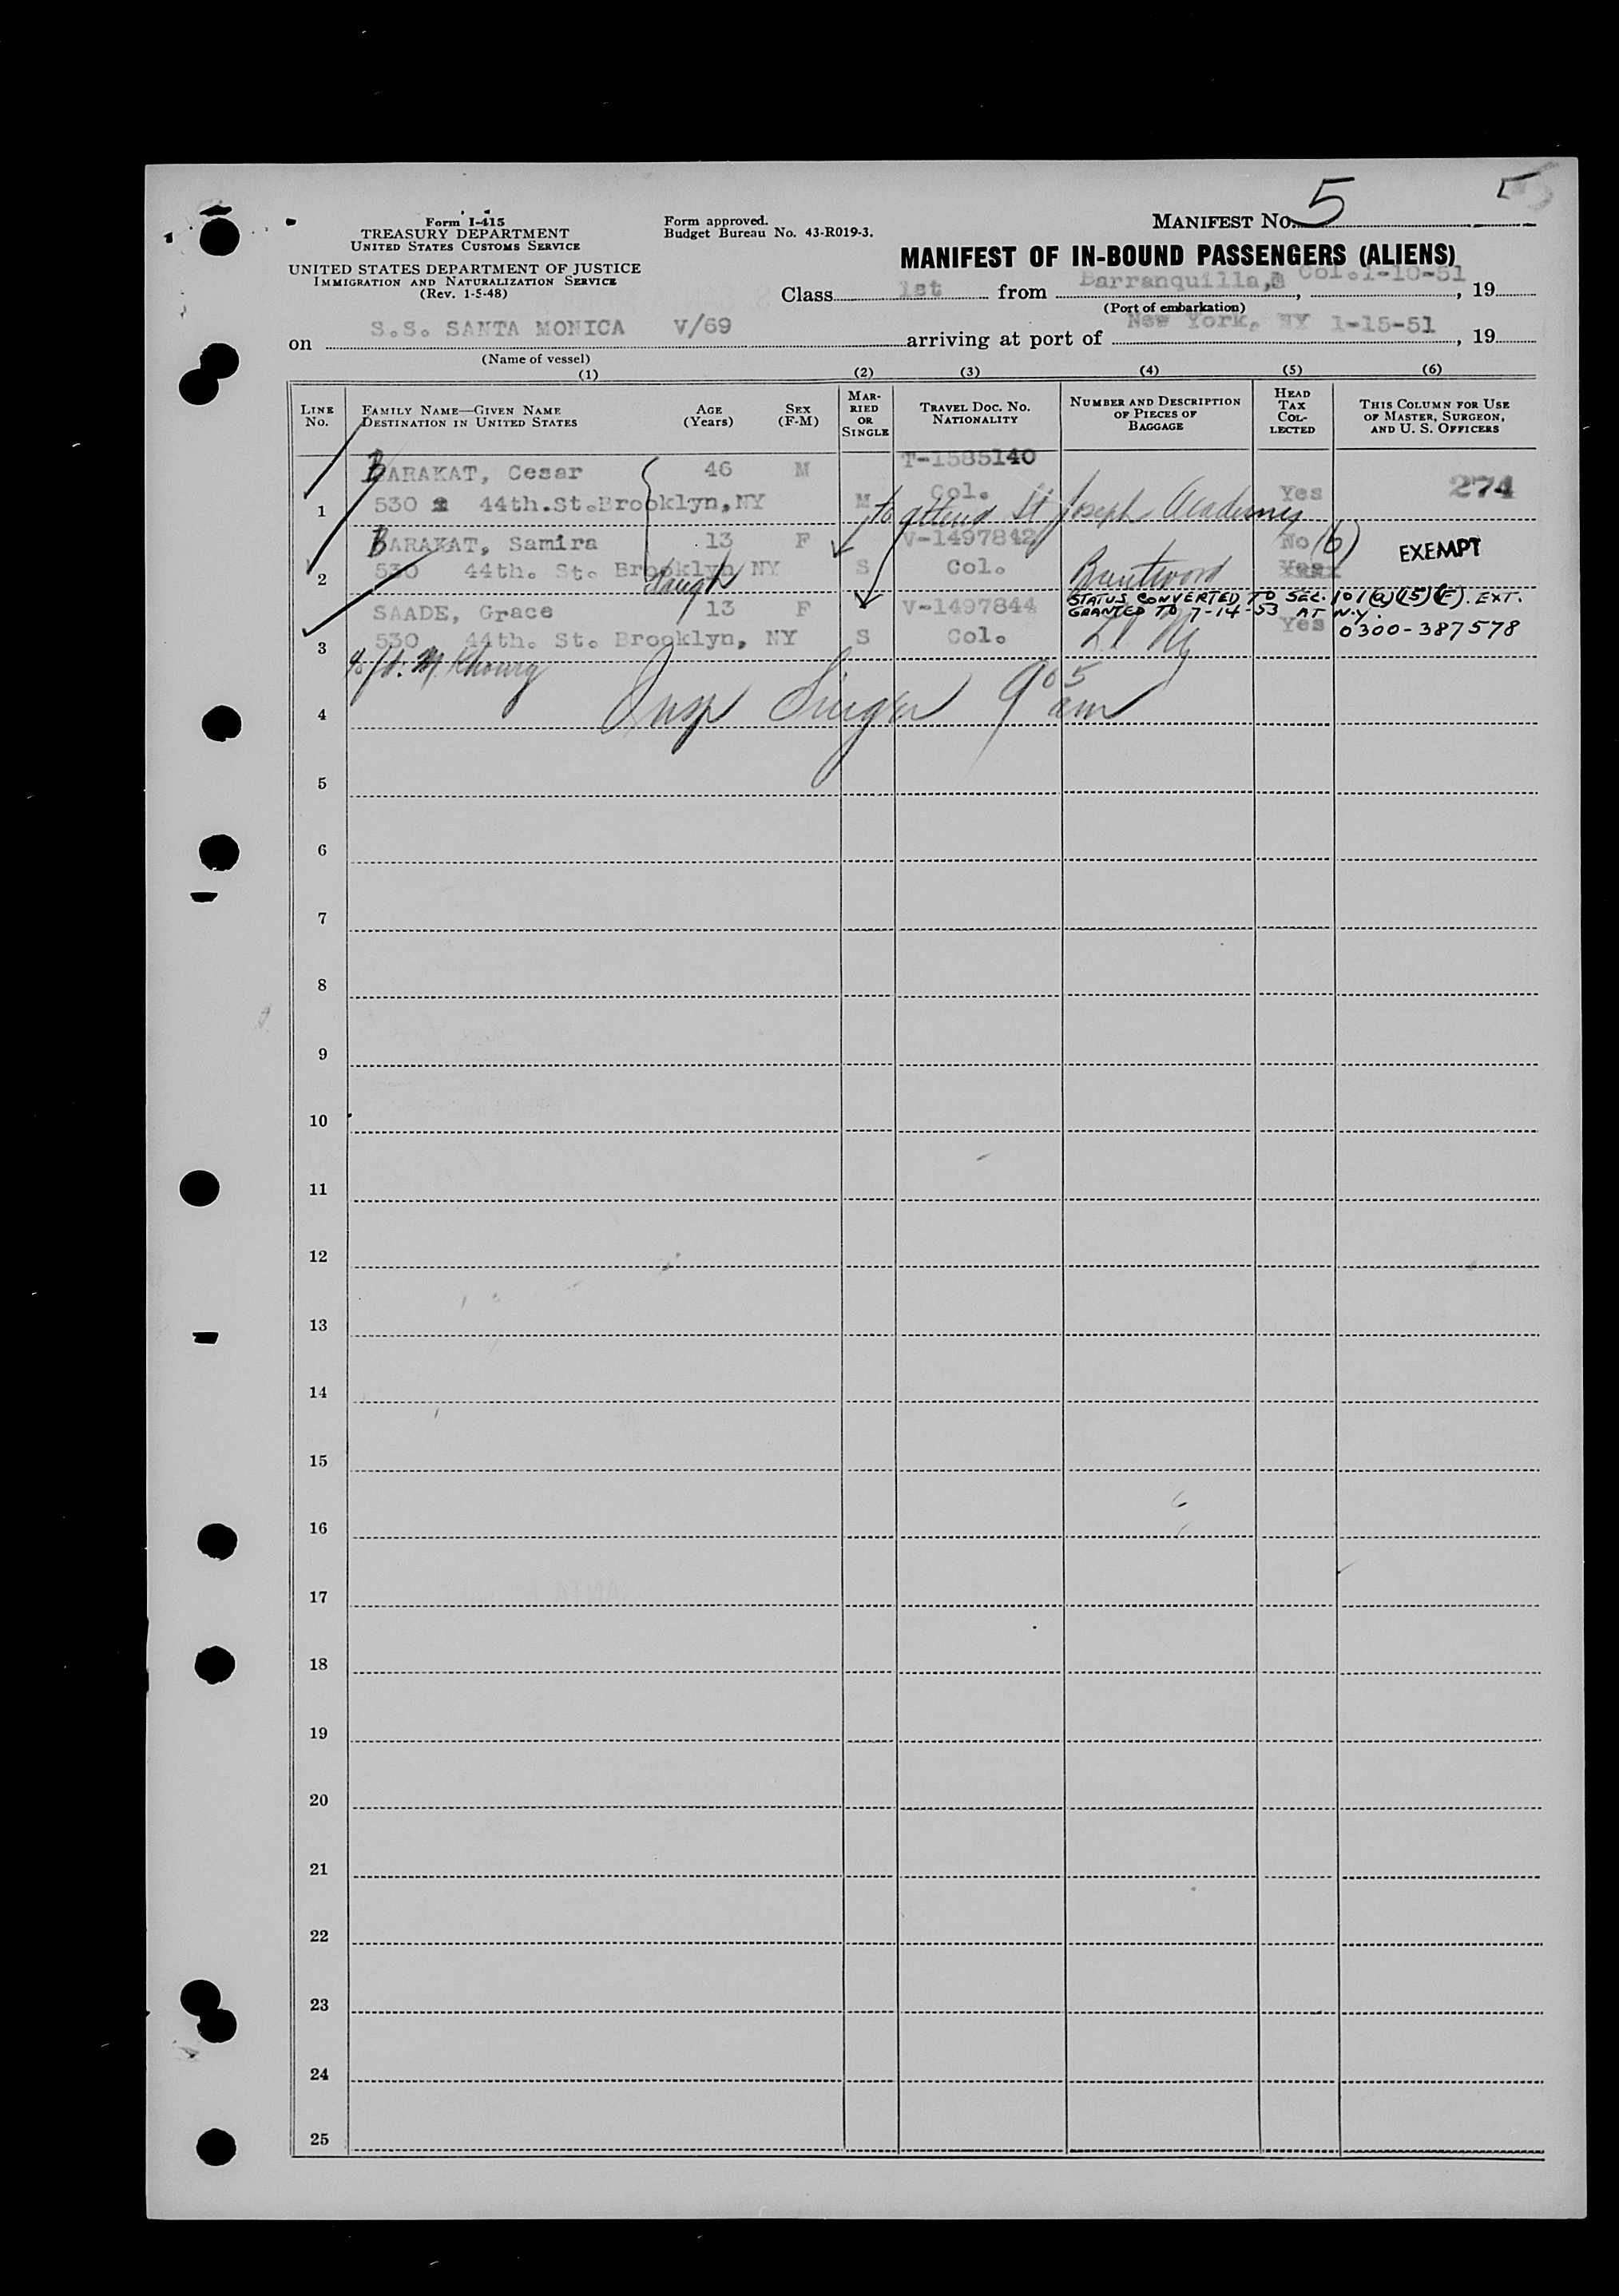 5
Form I-415
TREASURY DEPARTMENT
UNITED STATES CUSTOMS SERVICE
UNITED STATES DEPARTMENT OF JUSTICE
IMMIGRATION AND NATURALIZATION SERVICE
(Rev. 1-5-48)
Form approved.
Budget Bureau No. 43-R019-3.
MANIFEST NO. 5
MANIFEST OF IN-BOUND PASSENGERS (ALIENS)
Class 1st from Barranquilla, Col. 1-10-51, 19
(Port of embarkation)
on S.S. SANTA MONICA V/69 arriving at port of New York, NY 1-15-51, 19
(Name of vessel)
(1) (2) (3) (4) (5) (6)
LINE NO.
FAMILY NAME—GIVEN NAME
DESTINATION IN UNITED STATES
AGE (Years)
SEX (F-M)
MARRIED OR SINGLE
TRAVEL DOC. NO. NATIONALITY
NUMBER AND DESCRIPTION OF PIECES OF BAGGAGE
HEAD TAX COLLECTED
THIS COLUMN FOR USE OF MASTER, SURGEON, AND U. S. OFFICERS
BARAKAT, Cesar 46 M T-1585140
1 530 44th.St.Brooklyn,NY M Col. Yes 274
to attend St Joseph Academy
BARAKAT, Samira 13 F V-1497842 No (6) EXEMPT
2 530 44th. St. Brooklyn NY S Col. Brentwood Yes
daugh
STATUS CONVERTED TO SEC. 101(a)(15)(F). EXT.
GRANTED TO 7-14-53 AT N.Y.
SAADE, Grace 13 F V-1497844
3 530 44th. St. Brooklyn, NY S Col. L.I. NY Yes 0300-387578
Khoury
4 Insp Singer 9 05 am
5
6
7
8
9
10
11
12
13
14
15
16
17
18
19
20
21
22
23
24
25